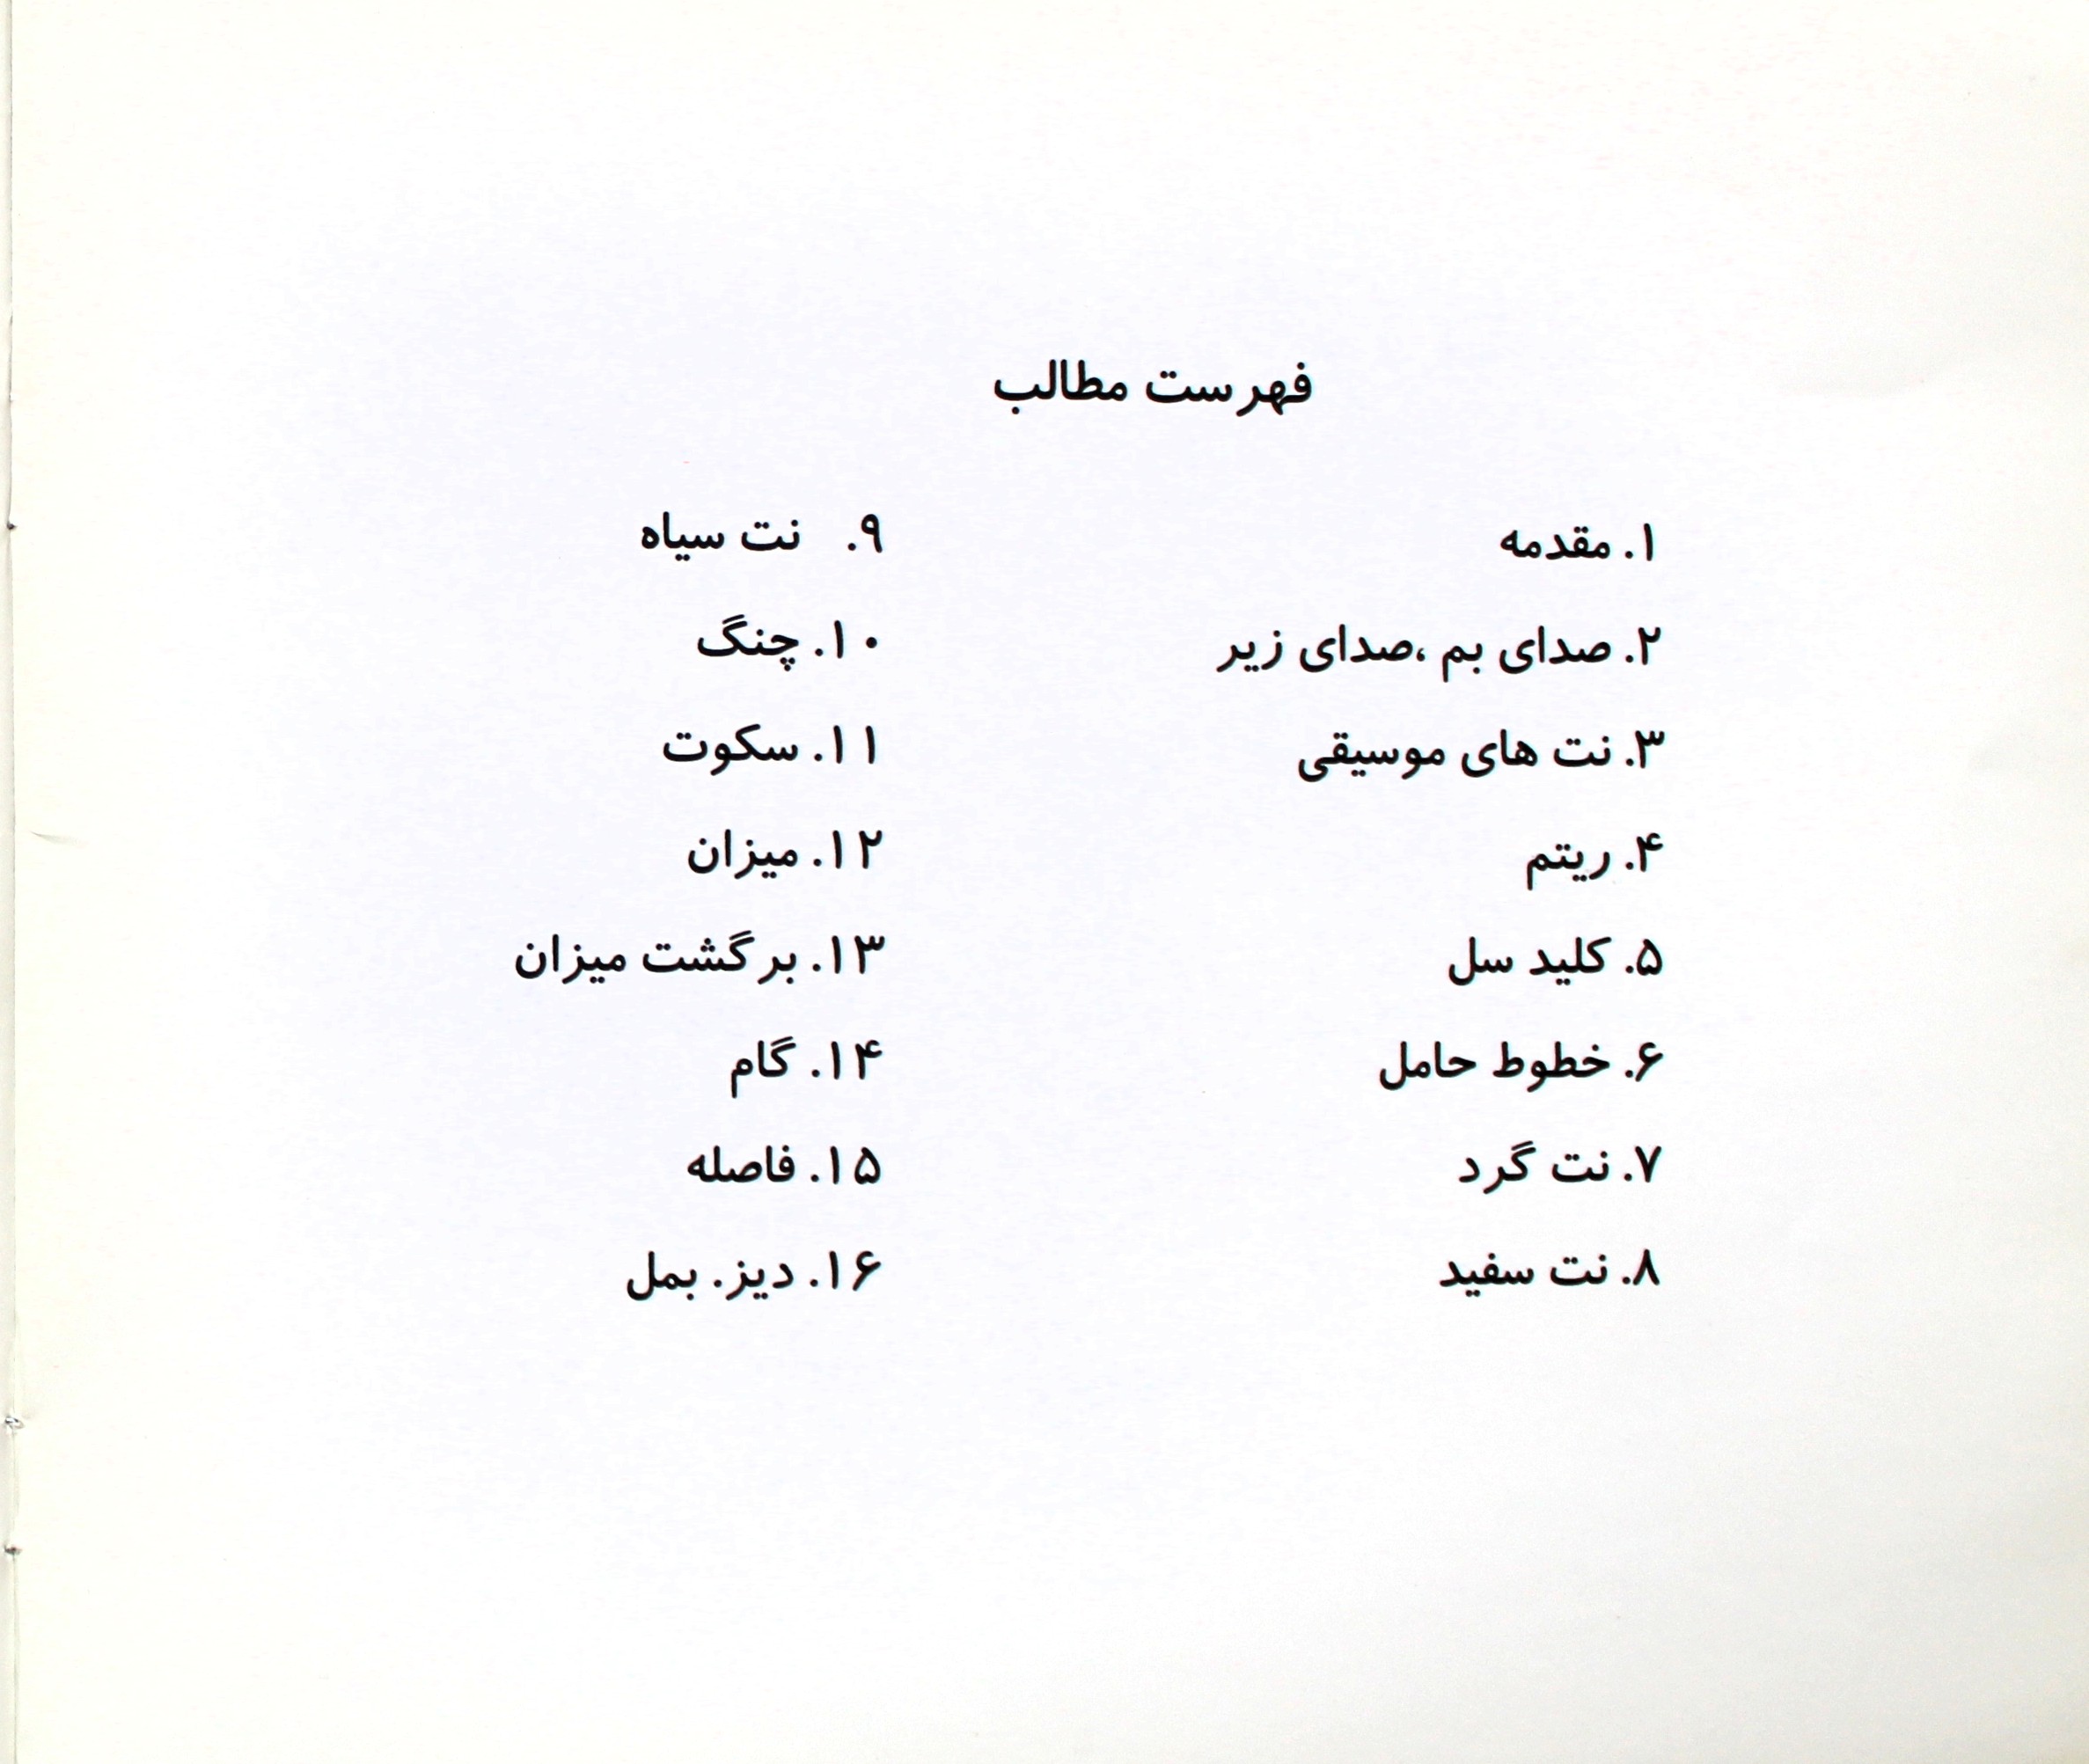 فهرست مطالب
۱. مقدمه
۲. صدای بم ،صدای زیر
۳. نت های موسیقی
۴. ریتم
۵. کلید سل
۶. خطوط حامل
۷. نت گرد
۸. نت سفید
۹. نت سیاه
۱۰. چنگ
۱۱. سکوت
۱۲. میزان
۱۳. برگشت میزان
۱۴. گام
۱۵. فاصله
۱۶. دیز. بمل